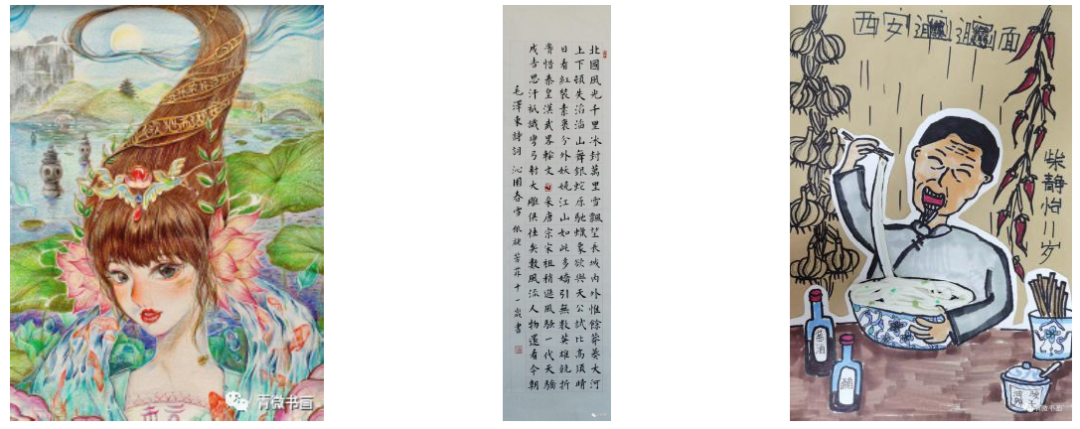 书画
北國風光千里冰封萬里雪飄望長城內外惟餘莽莽大河
上下頓失滔滔山舞銀蛇原馳蠟象欲與天公試比高須晴
日看紅裝素裹分外妖嬈江山如此多嬌引無數英雄競折
腰惜秦皇漢武略輸文采唐宗宋祖稍遜風騷一代天驕
成吉思汗祇識彎弓射大雕俱往矣數風流人物還看今朝
毛澤東詩詞 沁園春雪 十一歲書
西安𰻝𰻝面
柴静怡11岁
酱油
醋
书画